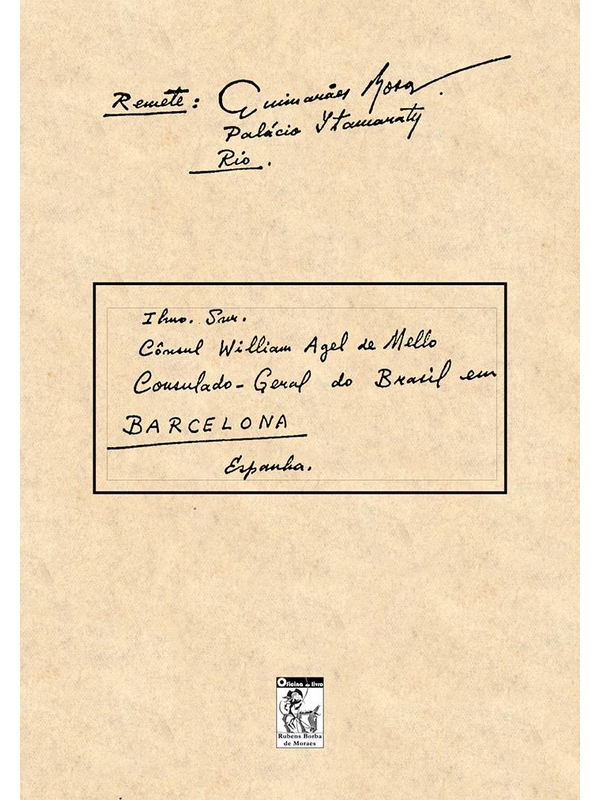 Remete: Guimarães Rosa
Palácio Itamaraty
Rio.
Ilmo. Snr.
Cônsul William Agel de Mello
Consulado-Geral do Brasil em
BARCELONA
Espanha.
Oficina do livro
Rubens Borba
de Moraes